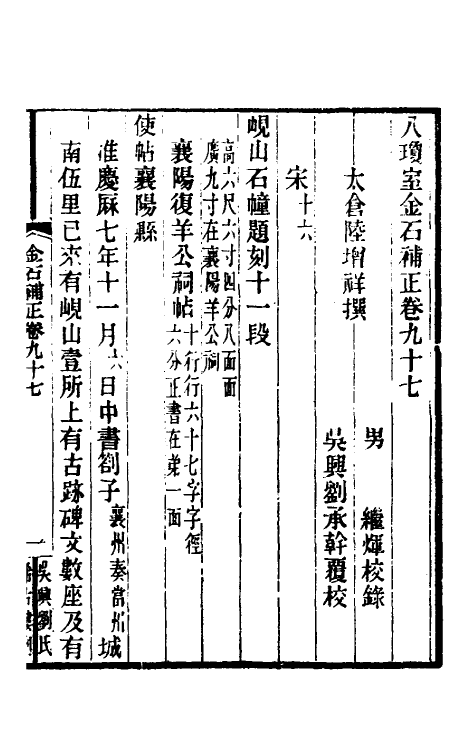 八瓊室金石補正卷九十七
太倉陸增祥撰
男　繼煇校錄
吳興劉承幹覆校
宋十六
峴山石幢題刻十一段
高六尺六寸四分八面面
廣九寸在襄陽羊公祠
襄陽復羊公祠帖十行行六十七字字徑
六分正書在弟一面
使帖襄陽縣
准慶厤七年十一月六日中書劄子襄州奏當州城
南伍里已來有峴山壹所上有古跡碑文數座及有
金石補正卷九十七
一
吳興劉氏